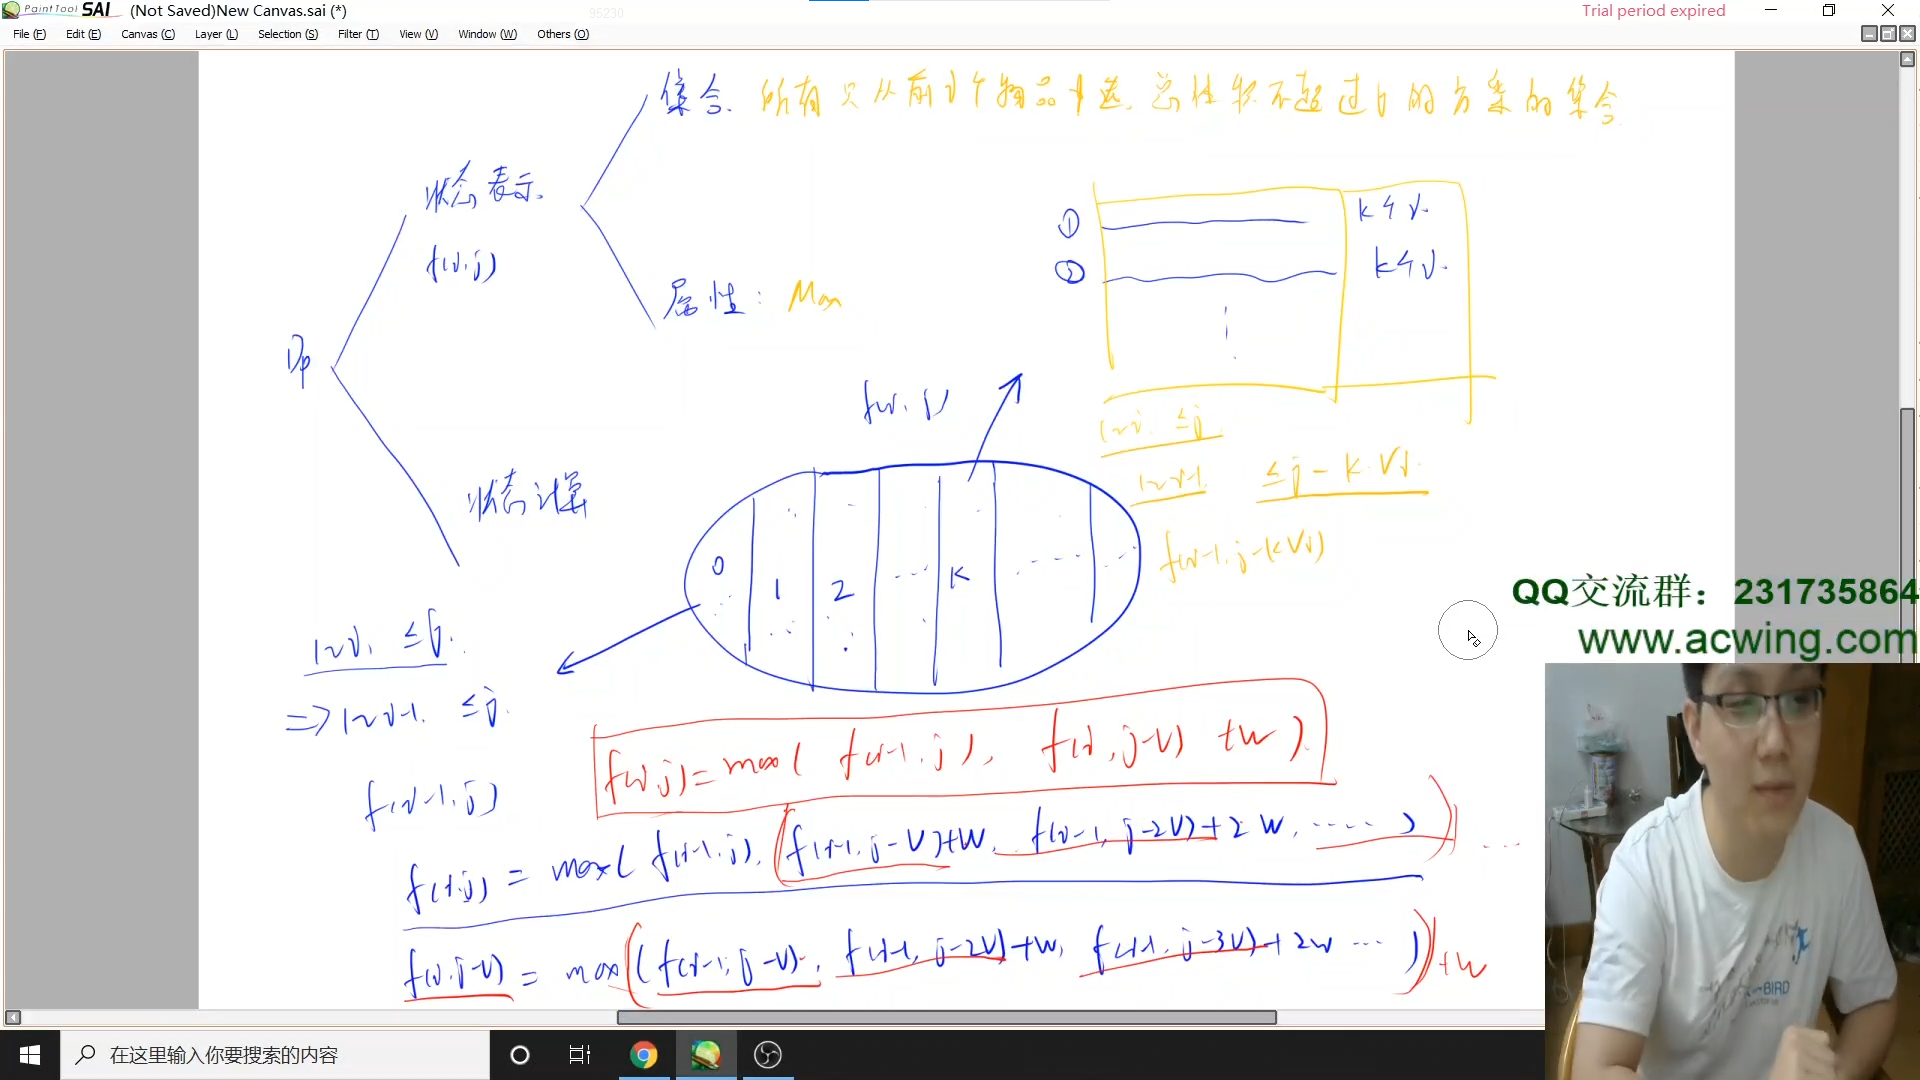 PaintTool SAI (Not Saved)New Canvas.sai (*)
95230
Trial period expired
File (F) Edit (E) Canvas (C) Layer (L) Selection (S) Filter (T) View (V) Window (W) Others (O)
集合. 所有只从前i个物品中选, 总体积不超过j的方案的集合.
状态表示.
f(i,j)
属性: Max
① k个i.
② k个i.
Dp
f(i, j)
1~i. ≤j.
1~i-1. ≤j - k·Vi.
f(i-1, j-kVi)
状态计算
0 1 2 ... k
QQ交流群：231735864
www.acwing.com
1~i, ≤j.
=> 1~i-1. ≤j.
f(i-1, j)
f(i,j)=max( f(i-1, j), f(i, j-v) +w ).
f(i,j) = max( f(i-1,j), f(i-1, j-v)+w, f(i-1, j-2v)+2w, ..... )
f(i,j-v) = max( f(i-1, j-v), f(i-1, j-2v)+w, f(i-1, j-3v)+2w ... ) +w
BIRD
在这里输入你要搜索的内容